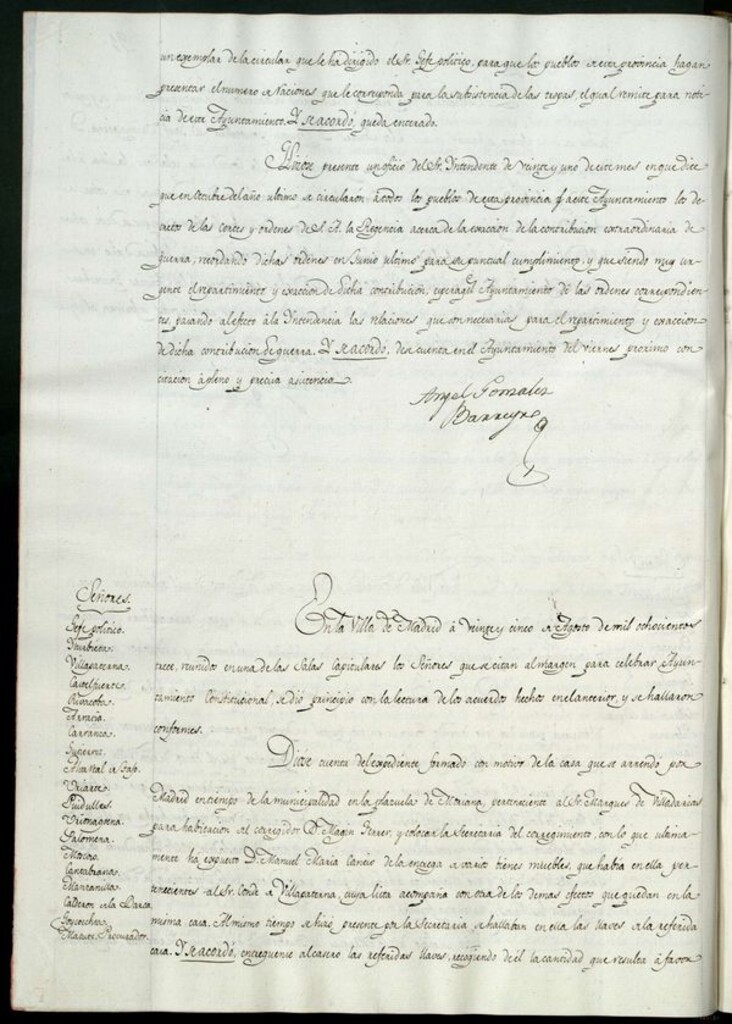 un exemplar de la circular que le ha dirigido el Sr. Gefe politico, para que los pueblos de esta provincia hagan
presentar el numero de raciones que le corresponda para la subsistencia de las tropas, el qual remite para noti-
cia de este Ayuntamiento. Y se acordó, queda enterado.
Hizose presente un oficio del Sr. Intendente de veinte y uno de este mes en que dice
que en Octubre del año ultimo se circularon à todos los pueblos de esta provincia y à este Ayuntamiento los de-
cretos de las Cortes y ordenes de S. A. la Regencia acerca de la exaccion de la contribucion extraordinaria de
guerra, recordando dichas ordenes en Junio ultimo para su puntual cumplimiento, y que siendo muy ur-
gente el repartimiento y exaccion de dicha contribucion, espera que el Ayuntamiento dé las ordenes correspondien-
tes, pasando al efecto à la Intendencia las relaciones que son necesarias para el repartimiento y exaccion
de dicha contribucion de guerra. Y se acordó, dese cuenta en el Ayuntamiento del viernes proximo con
citacion à pleno y precisa asistencia.
Angel Gonzalez
Barreyro
Señores.
Gefe politico.
Yturbieta.
Villapaterna.
Castelfuerte.
Arratia.
Carranza.
Gutierrez.
Uriarte.
Puidulles.
Palomera.
Cantabrana.
Manzanilla.
Calderon de la Barca.
Goycochea.
Matute Procurador.
En la Villa de Madrid à veinte y cinco de Agosto de mil ochocientos
trece, reunidos en una de las Salas Capitulares los Señores que se citan al margen para celebrar Ayun-
tamiento Constitucional, se dió principio con la lectura de los acuerdos hechos en el anterior, y se hallaron
conformes.
Diose cuenta del expediente formado con motivo de la casa que se arrendó por
Madrid en tiempo de la municipalidad en la plazuela de Moriana, perteneciente al Sr. Marques de Villadarias
para habitacion al corregidor D. Magin Ferrer, y colocar la Secretaria del corregimiento, con lo que ultima-
mente ha expuesto D. Manuel Maria Cancio de la entrega de varios bienes muebles, que habia en ella per-
tenecientes al Sr. Conde de Villapaterna, cuya lista acompaña con otra de los demas efectos que quedan en la
misma casa. Al mismo tiempo se hizo presente por la Secretaria se hallaban en ella las llaves de la referida
casa. Y se acordó, entreguense al casero las referidas llaves, recogiendo de él la cantidad que resulta à favor